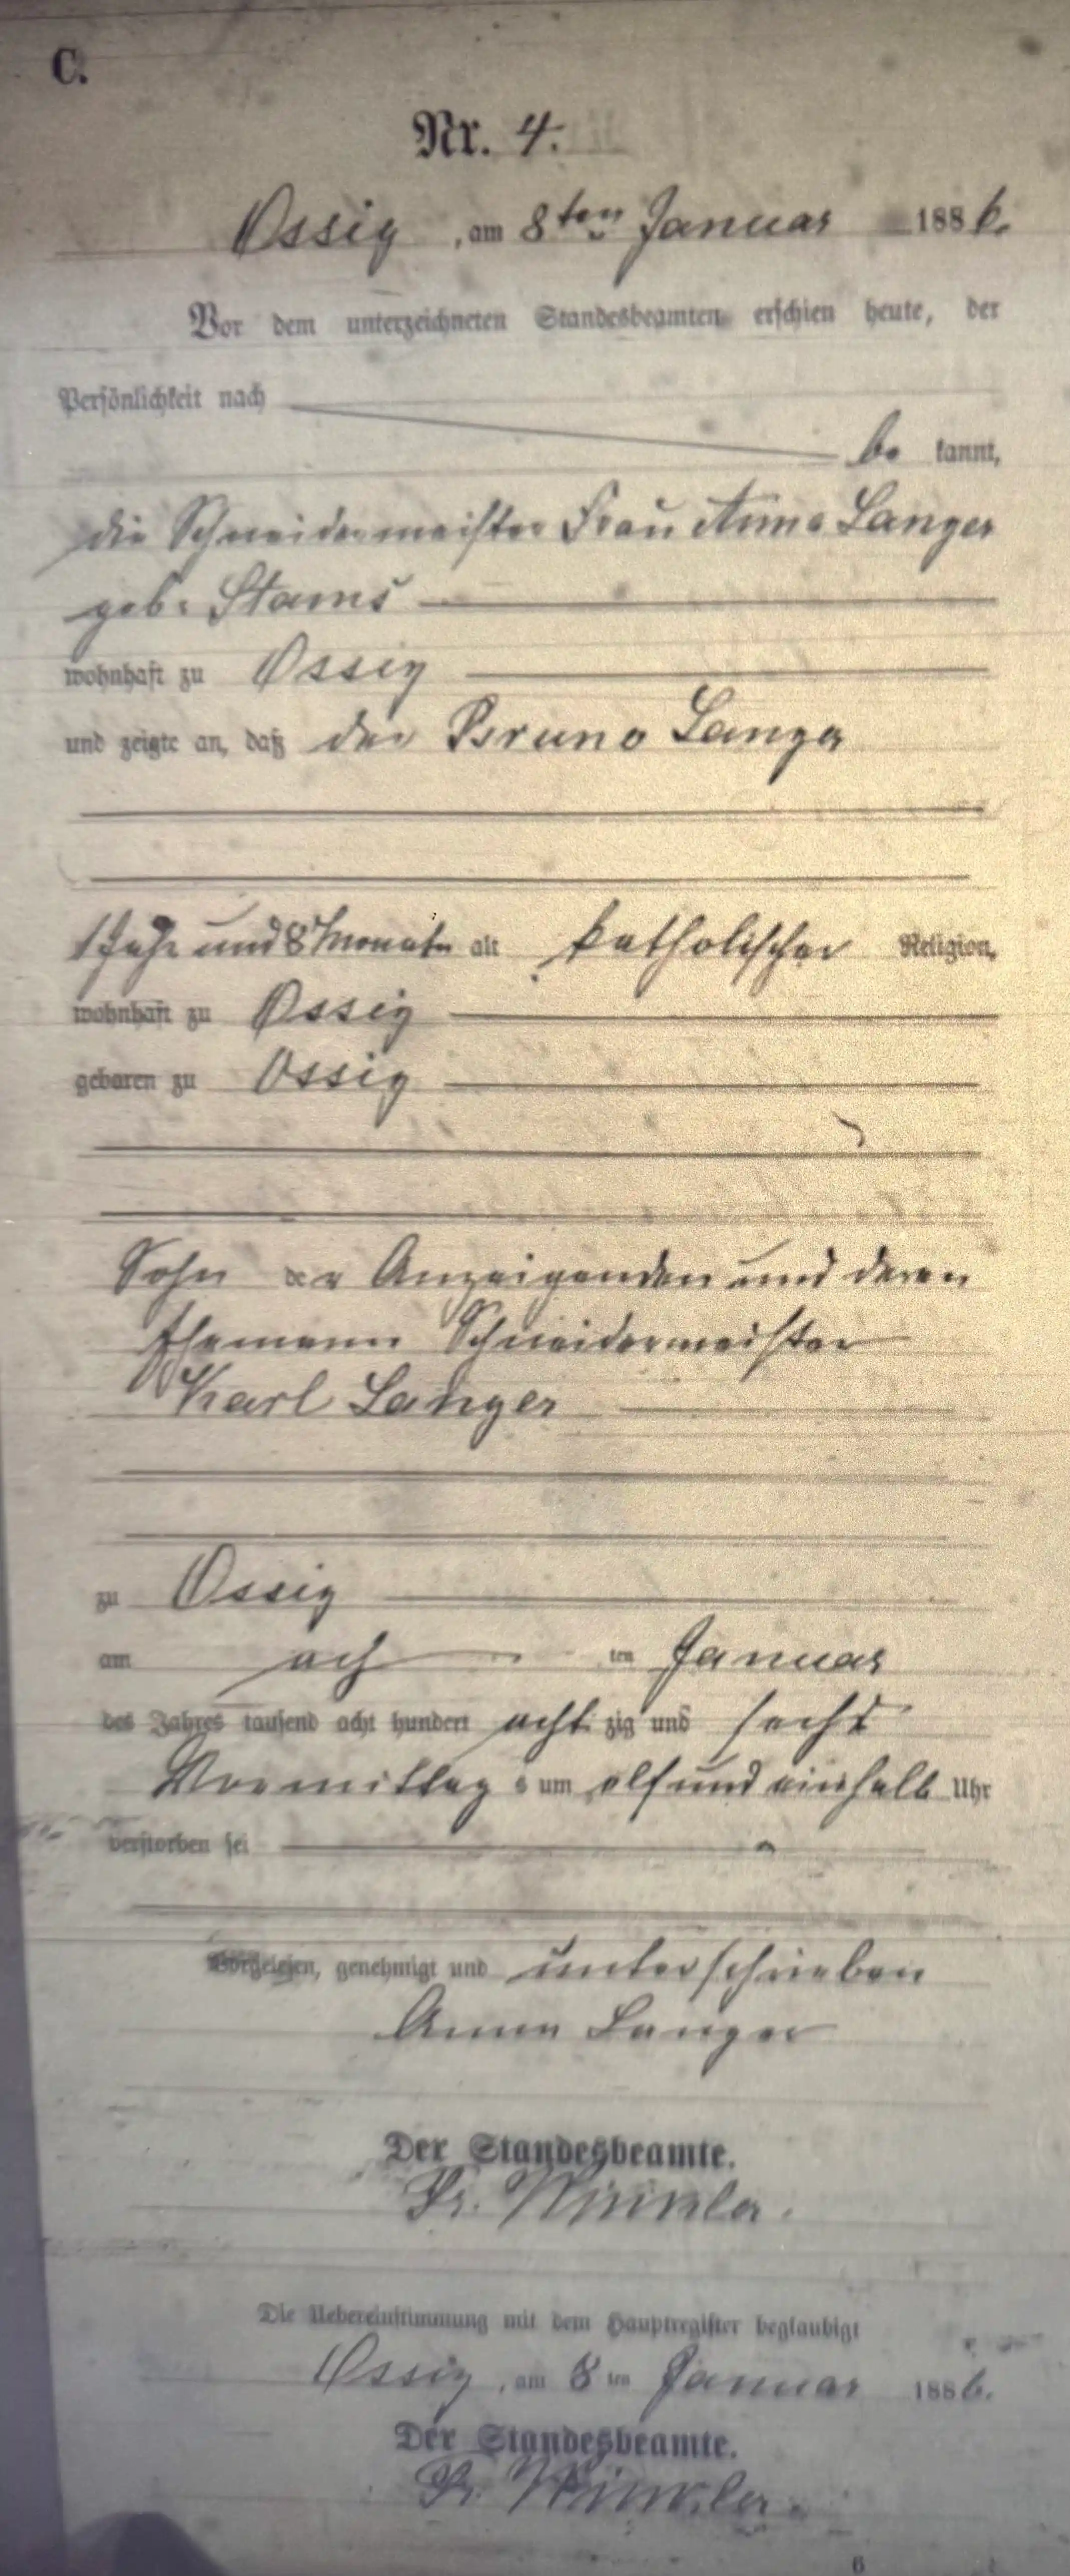 C.
Nr. 4.
Ossig, am 8ten Januar 1886.
Vor dem unterzeichneten Standesbeamten erschien heute, der
Persönlichkeit nach
be kannt,
die Schneidermeister Frau Anna Langer
geb. Stams
wohnhaft zu Ossig
und zeigte an, daß der Bruno Langer
1 Jahr und 8 Monate alt katholischer Religion,
wohnhaft zu Ossig
geboren zu Ossig
Sohn der Anzeigenden und deren
Ehemann Schneidermeister
Karl Langer
zu Ossig
am ach ten Januar
des Jahres tausend acht hundert achtzig und sechs
Vormittags um elf und einhalb Uhr
verstorben sei
Vorgelesen, genehmigt und unterschrieben
Anna Langer
Der Standesbeamte.
Fr. Winkler.
Die Uebereinstimmung mit dem Hauptregister beglaubigt
Ossig, am 8ten Januar 1886.
Der Standesbeamte.
Fr. Winkler.
6